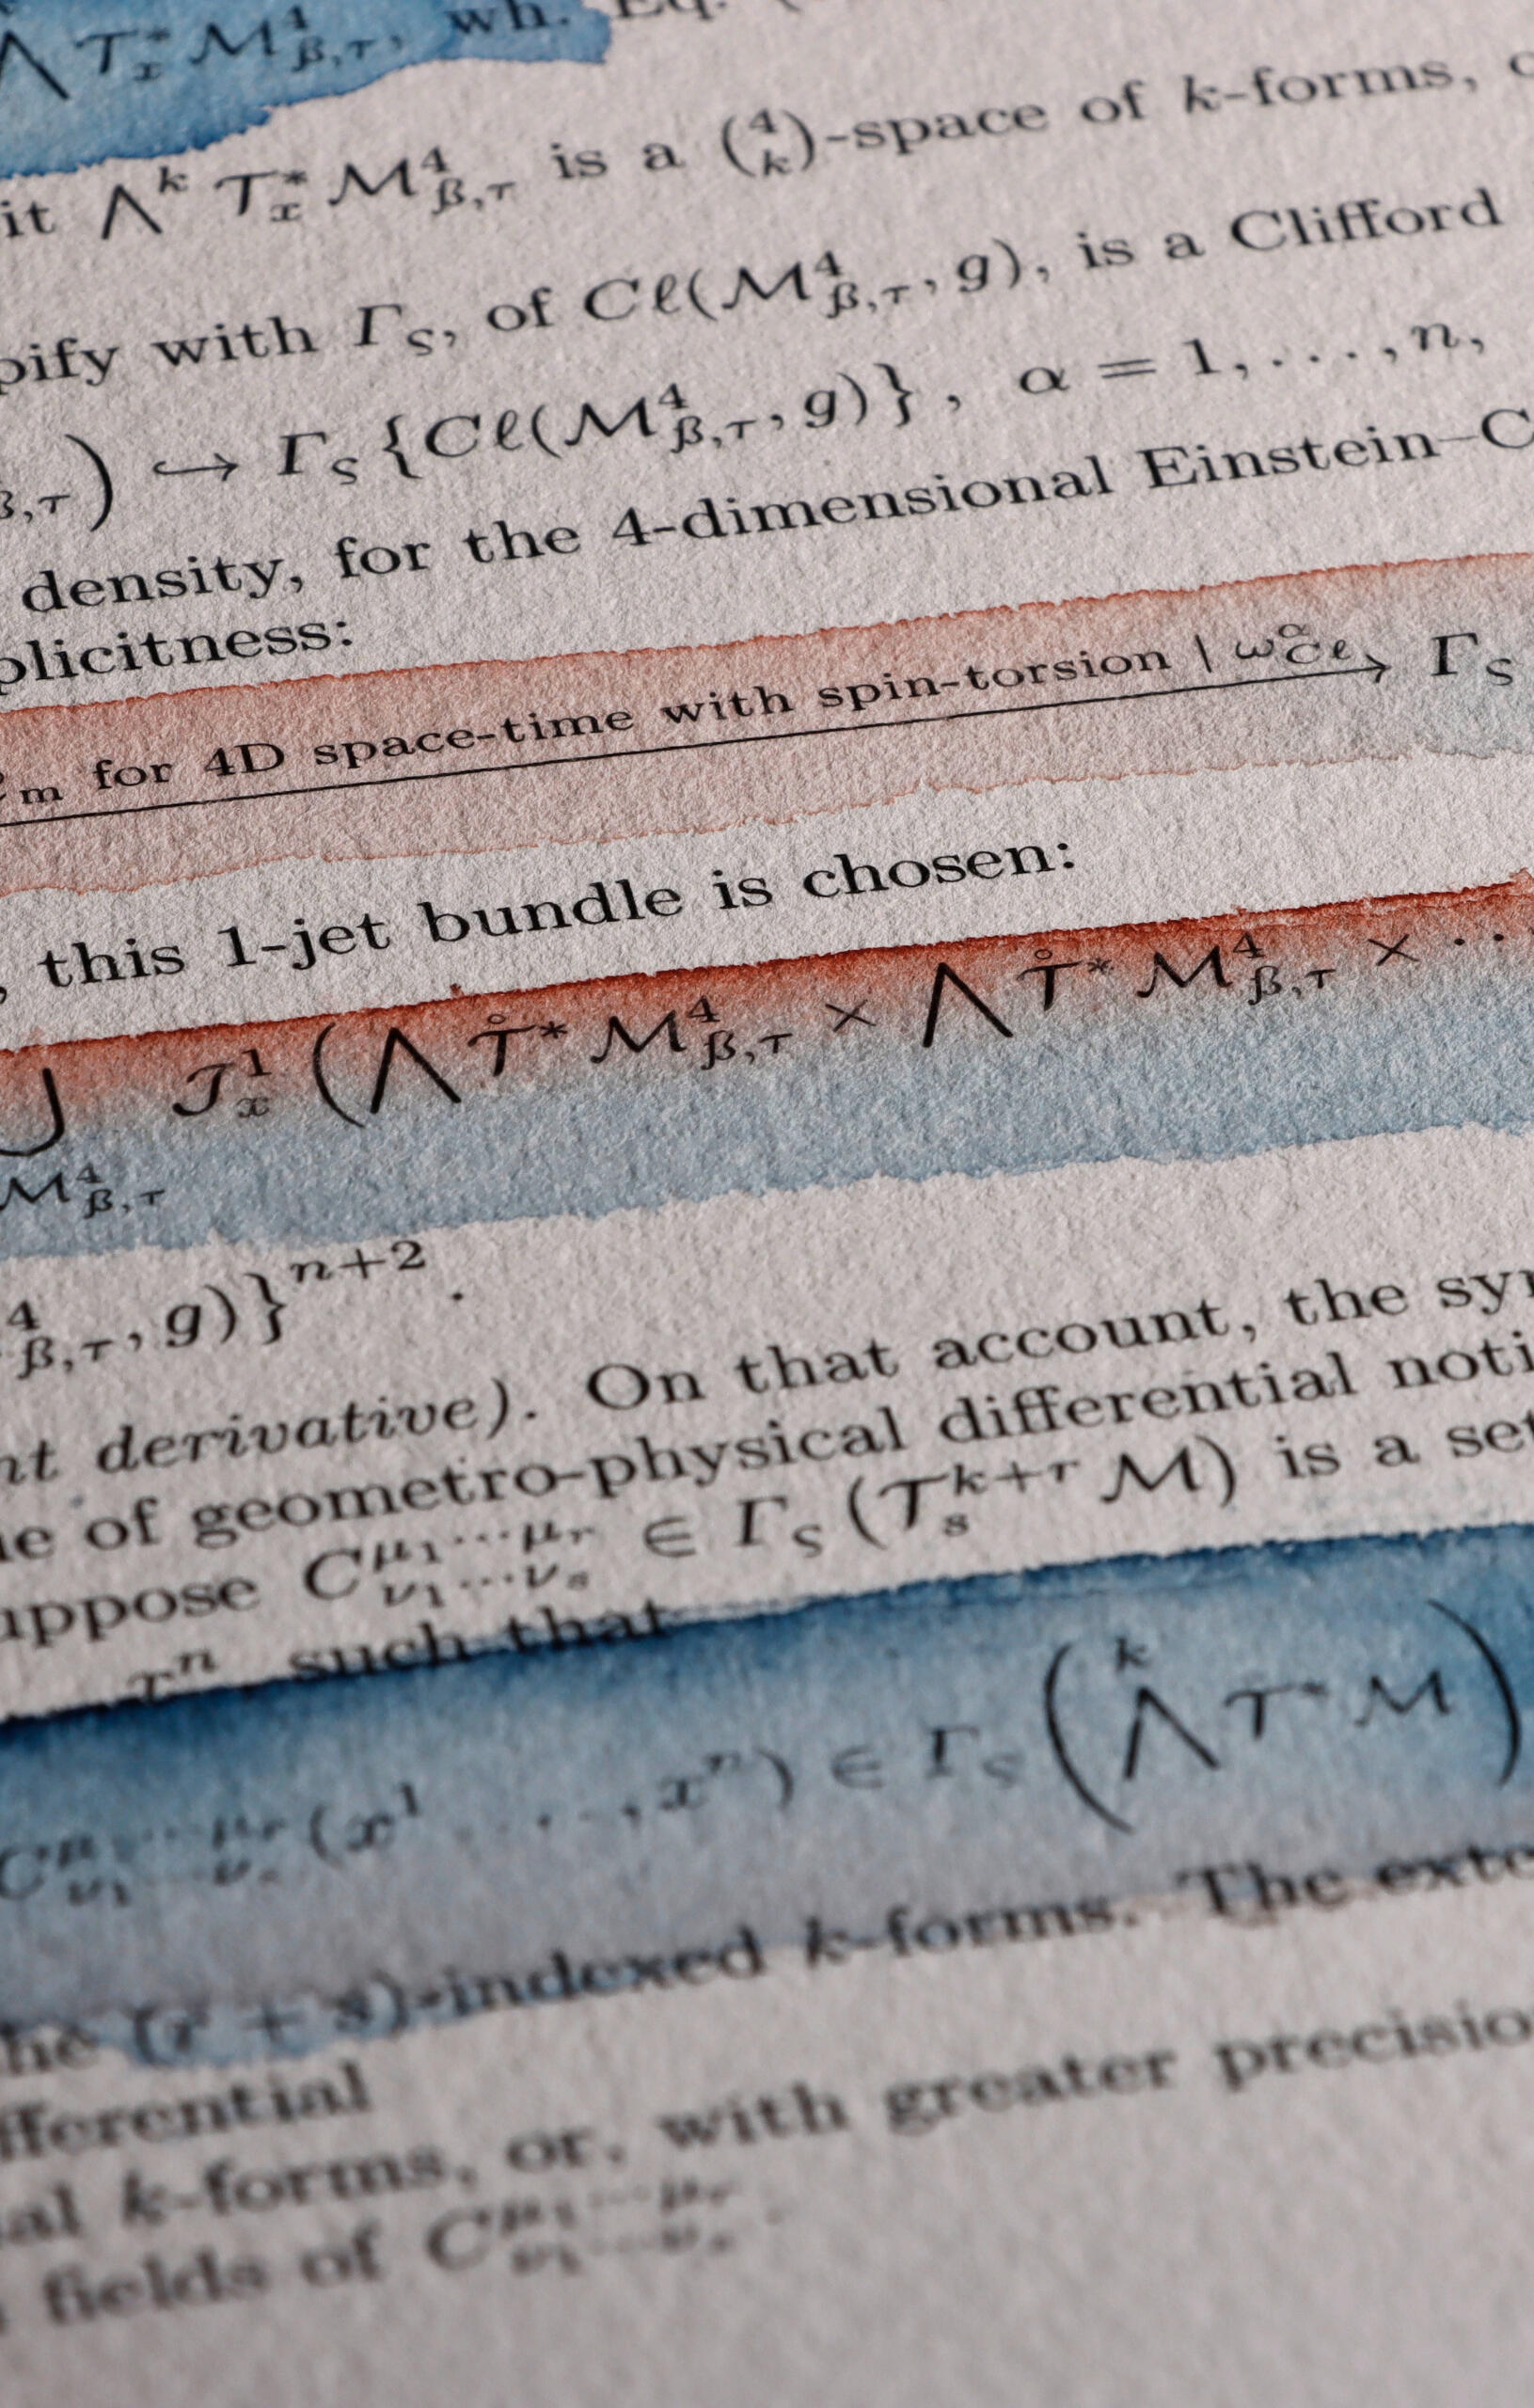 ⋀ T*ₓ M⁴_ß,τ, wh. Eq. (
it ⋀ᵏ T*ₓ M⁴_ß,τ is a (⁴ₖ)-space of k-forms,
pify with Γ_ς, of Cℓ(M⁴_ß,τ, g), is a Clifford
ß,τ) ↪ Γ_ς {Cℓ(M⁴_ß,τ, g)}, α = 1, . . . , n,
density, for the 4-dimensional Einstein–C
plicitness:
m for 4D space-time with spin-torsion | ω^α_Cℓ → Γ_ς
, this 1-jet bundle is chosen:
⋃ J¹ₓ (⋀ T̊* M⁴_ß,τ × ⋀ T̊* M⁴_ß,τ × · · ·
M⁴_ß,τ
⁴_ß,τ, g)}ⁿ⁺² .
nt derivative). On that account, the syn
ue of geometro-physical differential noti
uppose C^μ₁···μᵣ_ν₁···νₛ ∈ Γ_ς (Tₛᵏ⁺ʳ M) is a set
xⁿ, such that
C^μ₁···μᵣ_ν₁···νₛ (x¹, . . . , xⁿ) ∈ Γ_ς (⋀ᵏ T* M)
he (r + s)-indexed k-forms. The exte
fferential
al k-forms, or, with greater precisio
fields of C^μ₁···μᵣ_ν₁···νₛ .